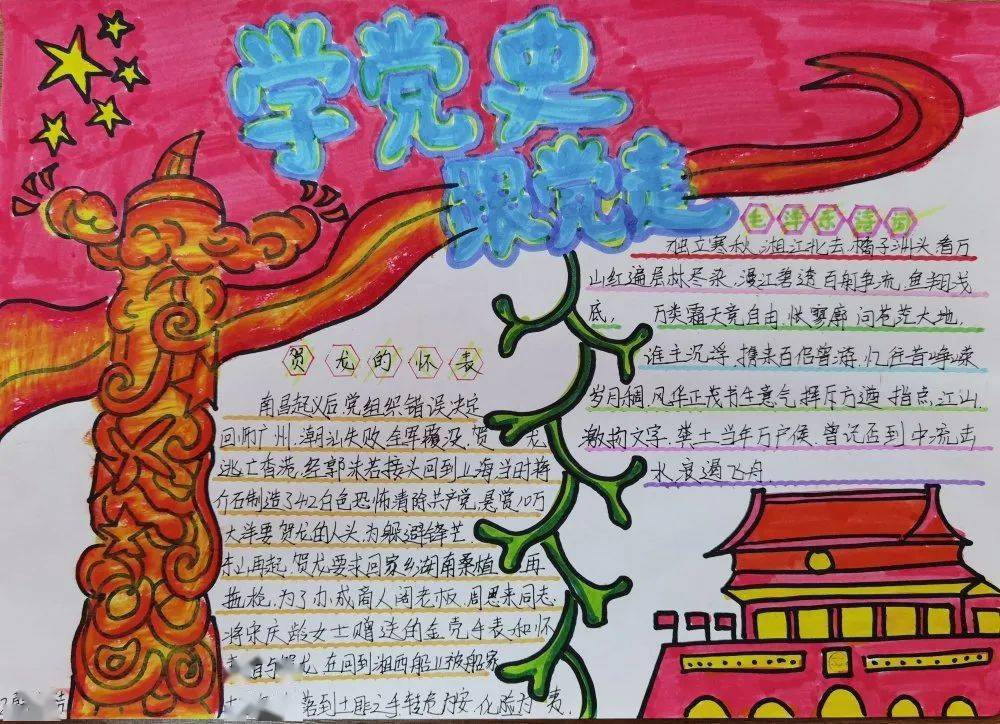 学党史
跟党走
毛泽东诗词
独立寒秋,湘江北去,橘子洲头,看万
山红遍层林尽染,漫江碧透百舸争流,鱼翔浅
底, 万类霜天竞自由,怅寥廓 问苍茫大地,
谁主沉浮,携来百侣曾游,忆往昔峥嵘
岁月稠,风华正茂书生意气,挥斥方遒 指点,江山,
激扬文字,粪土当年万户侯,曾记否到中流击
水,浪遏飞舟
贺龙的怀表
南昌起义后,党组织错误决定
回师广州,潮汕失败,全军覆没,贺 龙
逃亡香港,经郭沫若接头回到上海,当时蒋
介石制造了412白色恐怖清除共产党,悬赏10万
大洋要贺龙的人头,为躲避锋芒
东山再起,贺龙要求回家乡湖南桑植 再
拖枪,为了办成商人阔老板,周恩来同志,
将宋庆龄女士赠送的金壳手表和怀
贺龙,在回到湘西船上被船家
落到土匪之手转危为安,化险为夷.